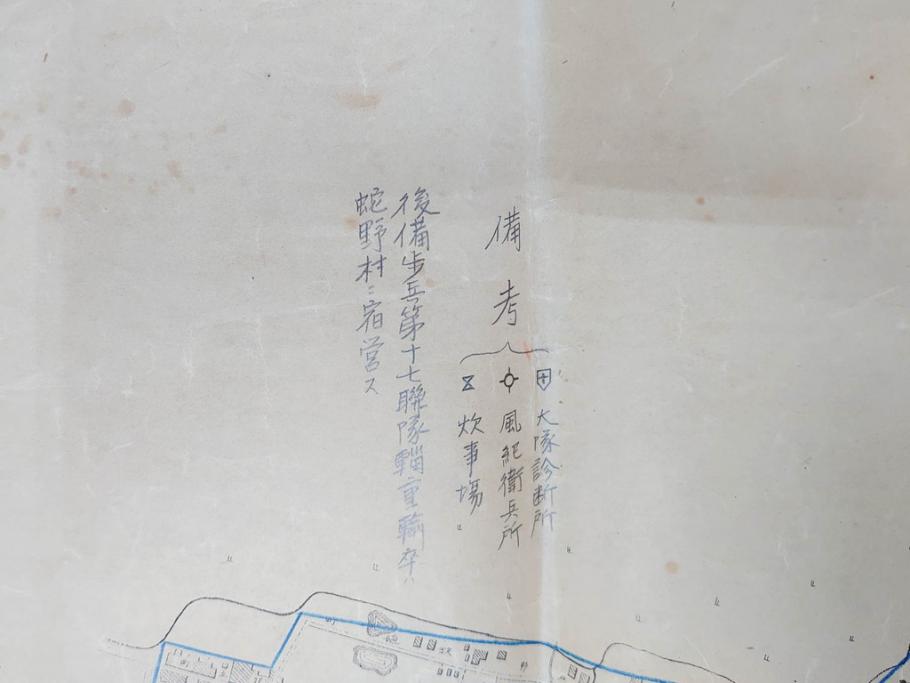 備考
大隊診断所
風紀衛兵所
炊事場
後備歩兵第十七聯隊輜重輸卒ハ
蛇野村ニ宿営ス